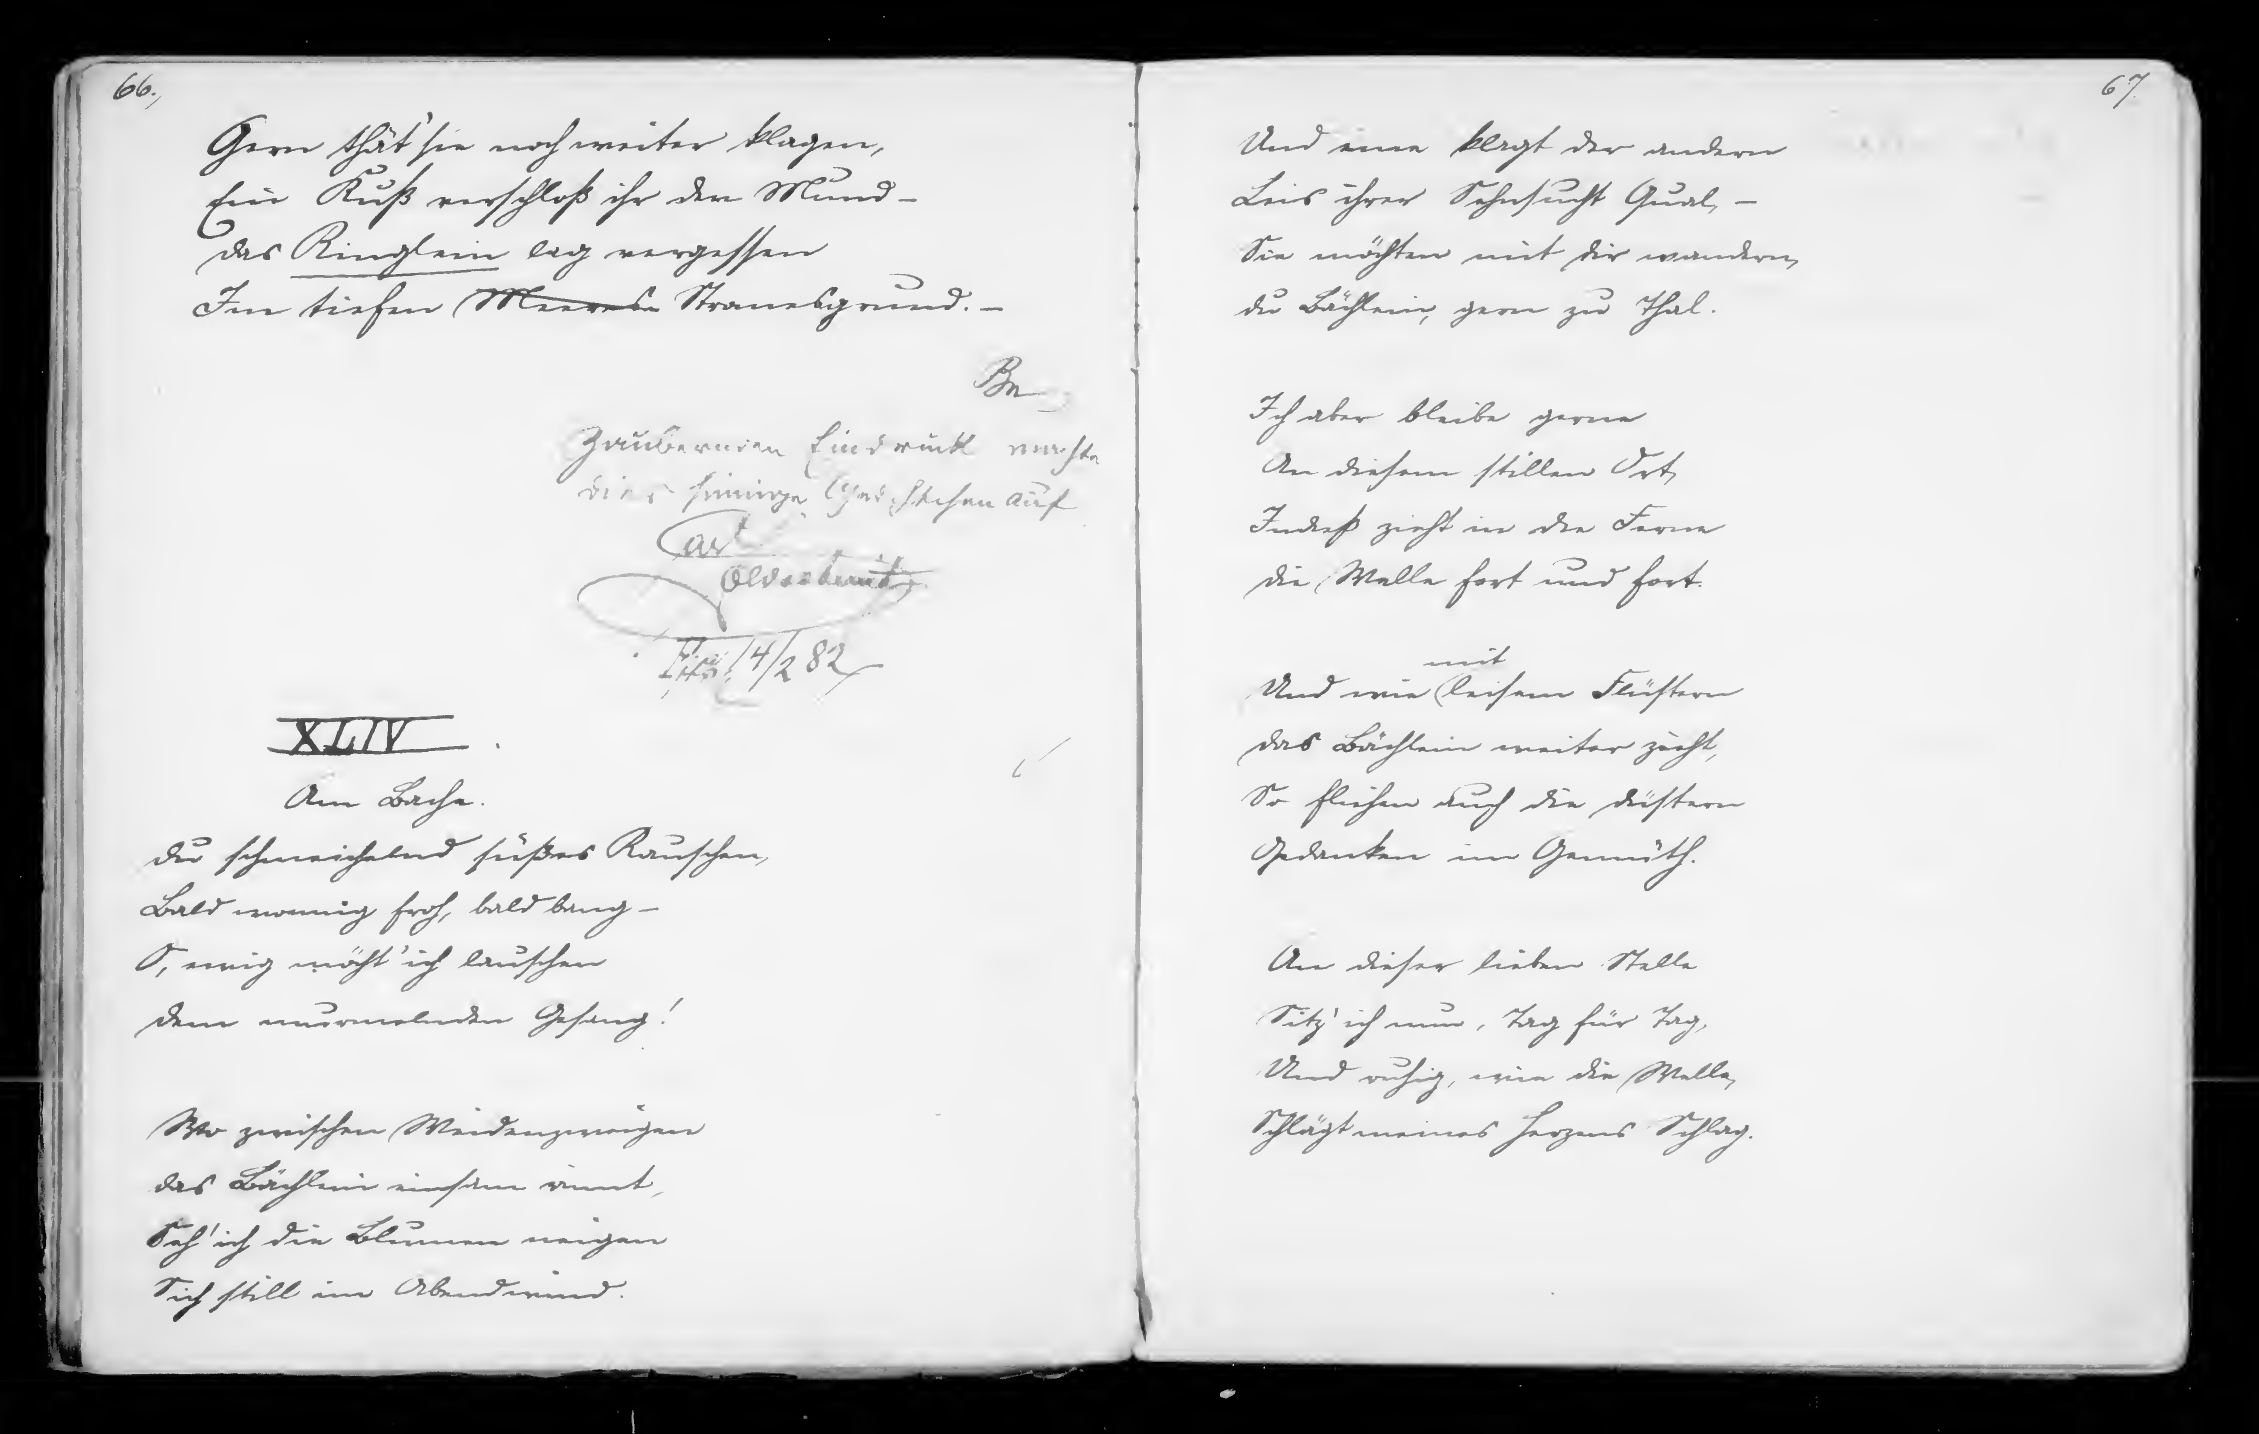 66.,
Gern thät' sie noch weiter klagen,
Ein Kuß verschloß ihr den Mund –
das Ringlein lag vergessen
Im tiefen Meeres Stromesgrund. –
Zaubernden Eindruck machte
dies sinnige Gedichtchen auf
Carl
14/2 82
XLIV.
Am Bache.
du schmeichelnd süßes Rauschen,
Bald wonnig froh, bald bang –
O, ewig möcht' ich lauschen
dem murmelnden Gesang!
Wo zwischen Weidenzweigen
das Bächlein einsam rinnt,
Seh' ich die Blumen neigen
Sich still im Abendwind.
67.
Und eine klagt der andern
Leis ihrer Sehnsucht Qual, –
Sie möchten mit dir wandern,
du Bächlein, gern zu Thal.
Ich aber bleibe gerne
An diesem stillen Ort,
Indeß zieht in die Ferne
die Welle fort und fort.
mit
Und wie leisem Flüstern
das Bächlein weiter zieht,
So fliehen auch die düstern
Gedanken im Gemüth.
An dieser lieben Stelle
Sitz' ich nun, Tag für Tag,
Und ruhig, wie die Welle,
Schlägt meines Herzens Schlag.